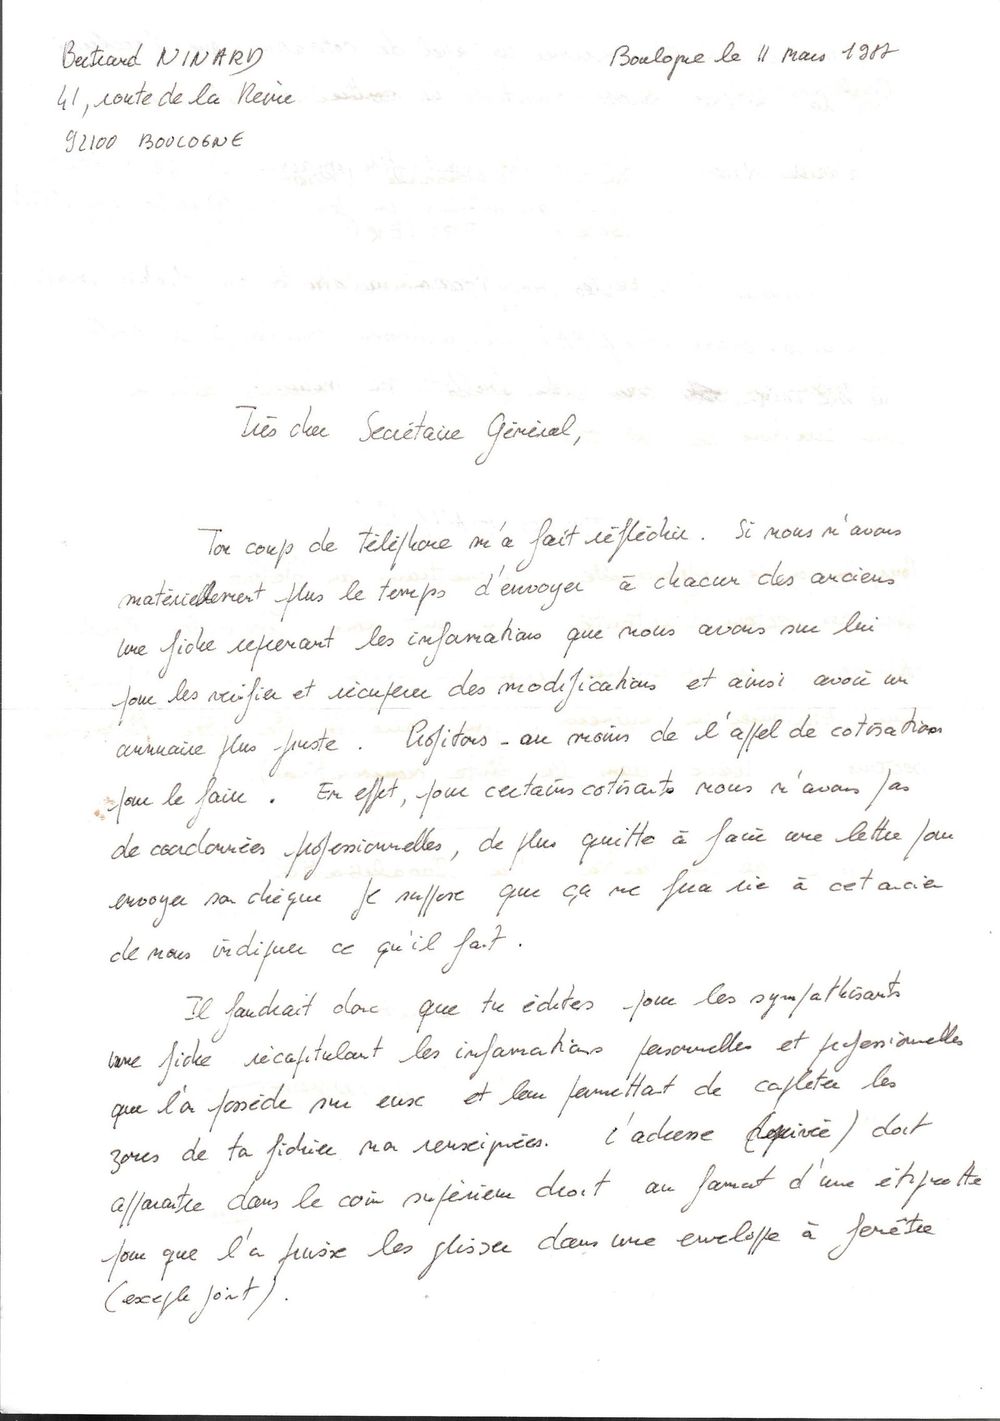 Bertrand NINARD
Boulogne le 11 mars 1987
41, route de la Reine
92100 BOULOGNE
Très cher Secrétaire Général,
Ton coup de téléphone m'a fait réfléchir. Si nous n'avons
matériellement plus le temps d'envoyer à chacun des anciens
une fiche reprenant les informations que nous avons sur lui
pour les vérifier et récupérer des modifications et ainsi avoir un
annuaire plus juste. Profitons - au moins de l'appel de cotisations
pour le faire. En effet, pour certains cotisants nous n'avons pas
de coordonnées professionnelles, de plus quitte à faire une lettre pour
envoyer son chèque je suppose que ça ne fera rie à cet ancien
de nous indiquer ce qu'il fait.
Il faudrait donc que tu édites pour les sympathisants
une fiche récapitulant les informations personnelles et professionnelles
que l'on possède sur eux et leur permettant de compléter les
zones de ta fichier non renseignées. L'adresse (privée) doit
apparaître dans le coin supérieur droit au format d'une étiquette
pour que l'on puisse les glisser dans une enveloppe à fenêtre
(exemple joint).